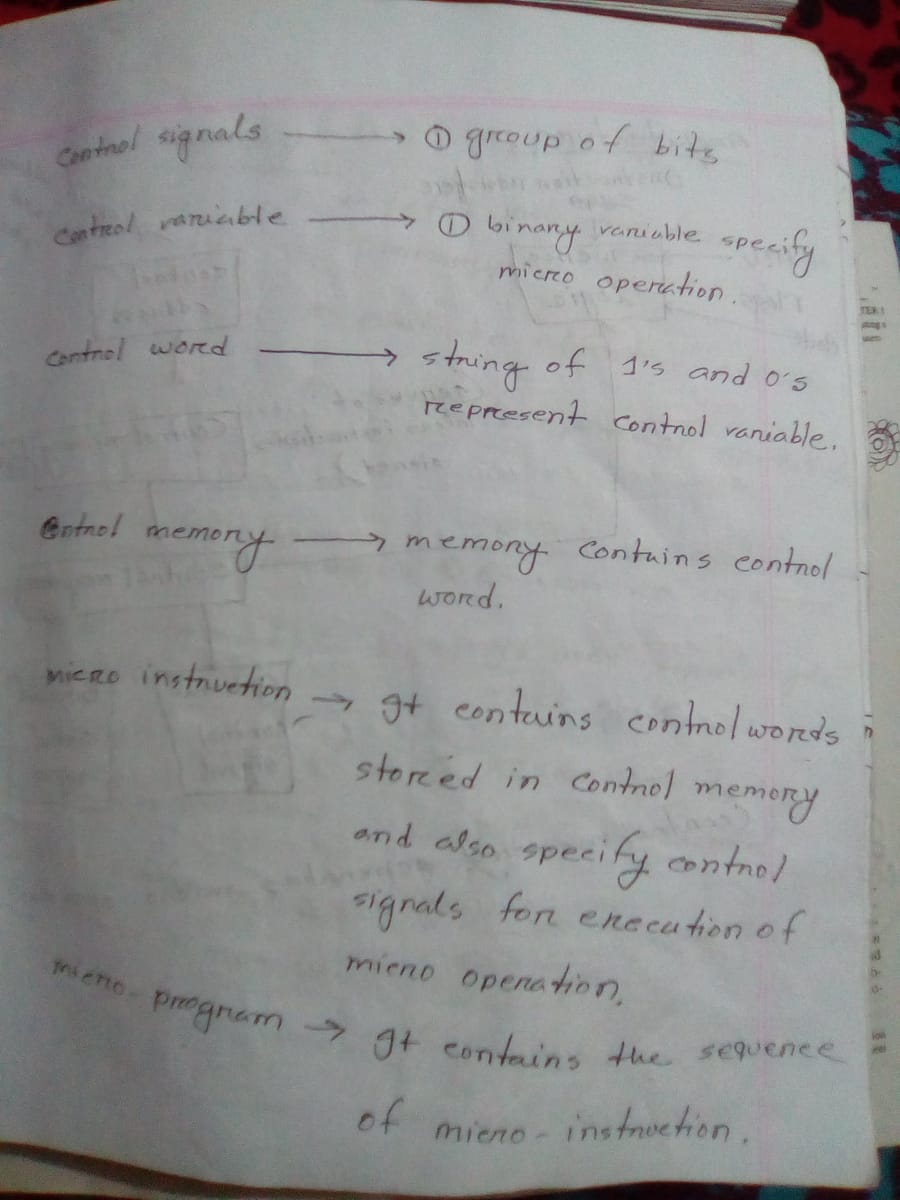 Control signals → ① group of bits
Control variable → ① binary variable specify
micro operation.
Control word → string of 1's and 0's
represent control variable.
Control memory → memory contains control
word.
micro instruction → It contains control words
stored in control memory
and also specify control
signals for execution of
micro operation.
micro-program → It contains the sequence
of micro-instruction.